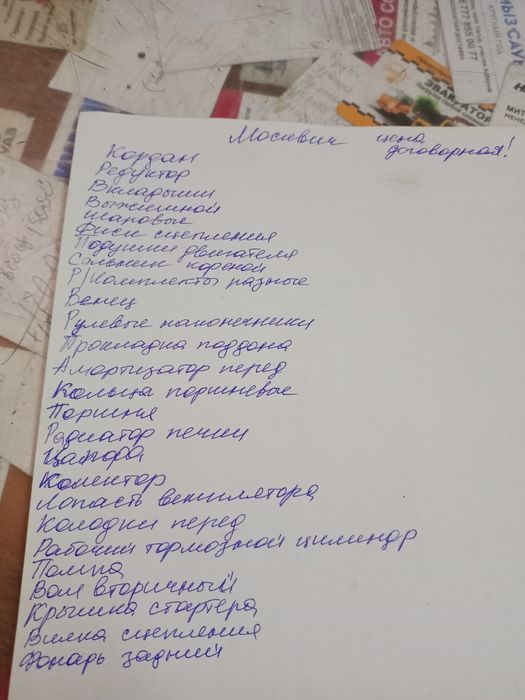 УАЗ
ВТО СО
ЭВАКУАТОР
777 855 00 77
КРУГЛЫЙ ГОД
МИТ
МЕНЕД
Москвич цена
договорная!
Кордан
Редуктор
Вкладыши
Выжимной
шаровые
Фиск сцепления
Подушки двигателя
Сальник кореной
Р/Комплекты разные
Венец
Рулевые наконечники
Прокладка поддона
Амортизатор перед
Кольца поршневые
Поршня
Радиатор печки
Цапфа
Колектор
Лопасть вентилятора
Колодки перед
Рабочий тормозной цилиндр
Помпа
Вал вторичный
Крышка стартера
Вилка сцепления
Фонарь задний